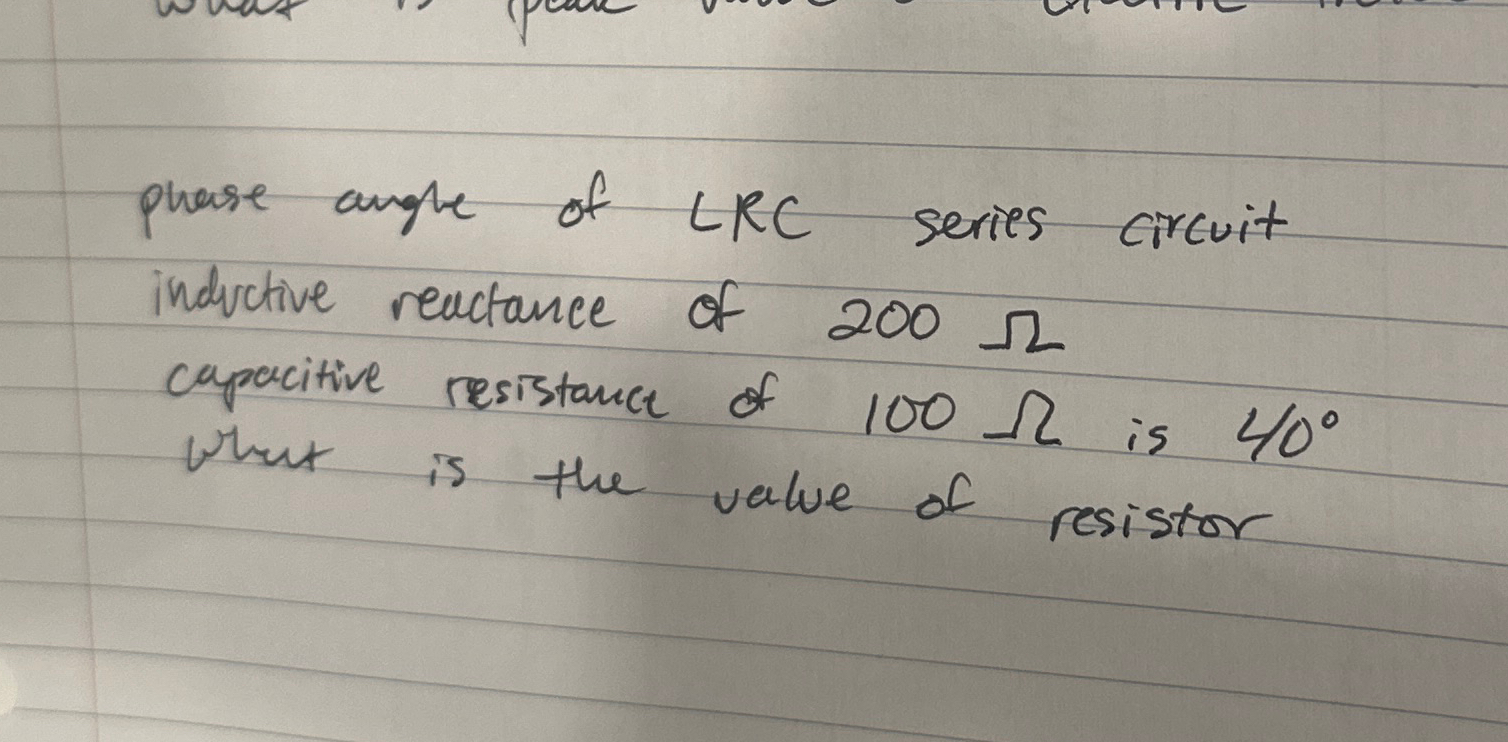 what is peak value
phase angle of LRC series circuit
inductive reactance of 200 Ω
capacitive resistance of 100 Ω is 40°
What is the value of resistor